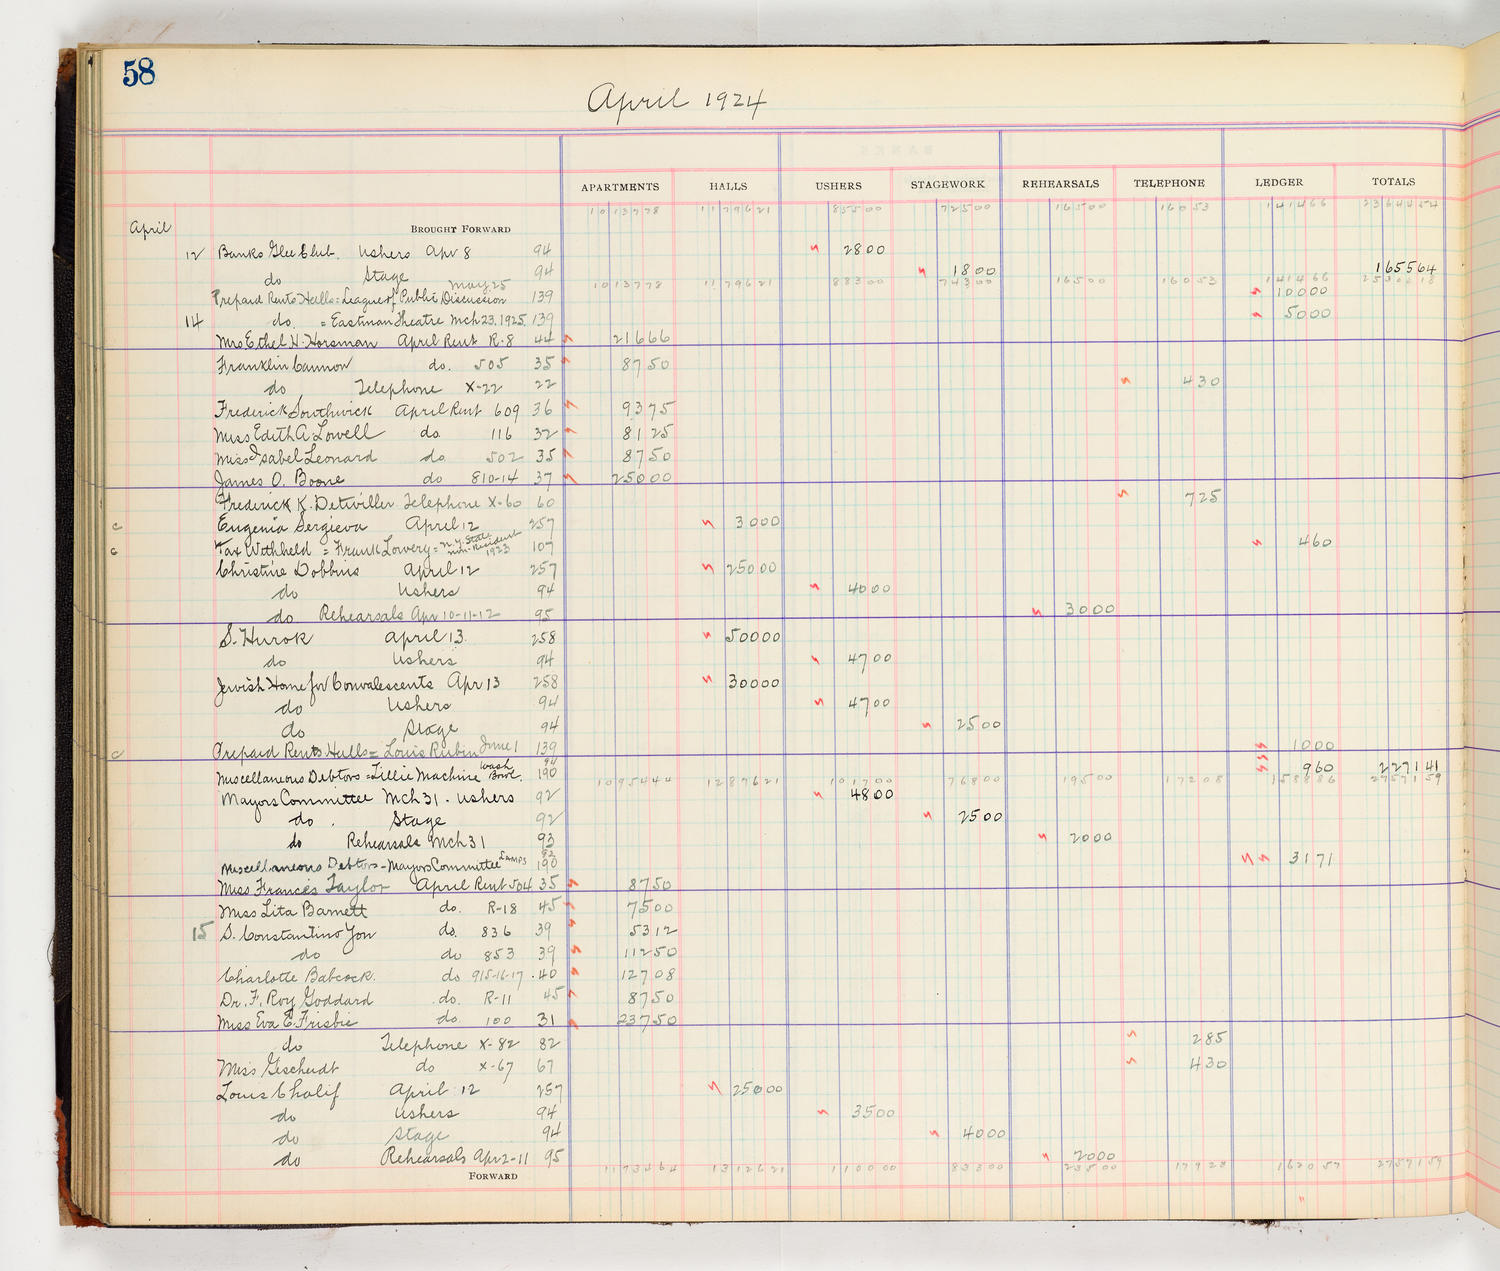 58
April 1924
APARTMENTS HALLS USHERS STAGEWORK REHEARSALS TELEPHONE LEDGER TOTALS
1013778 1179621 85500 72500 16500 16053 141466 2364454
April BROUGHT FORWARD
12 Banks Glee Club. Ushers Apr 8 94 2800
do Stage 94 1800 165564
1013778 1179621 88300 74300 16500 16053 141466
Prepaid Rents Halls = League of Public Discussion May 25 139 10000
14 do. = Eastman Theatre Mch 23. 1925. 139 5000
Mrs Ethel H. Horsman April Rent R-8 44 21666
Franklin Cannon do. 505 35 8750
do Telephone X-22 22 430
Frederick Southwick April Rent 609 36 9375
Miss Edith A. Lowell do 116 32 8125
Miss Isabel Leonard do 502 35 8750
James O. Boone do 810-14 37 25000
Frederick K. Detwiller Telephone X-60 60 725
c Eugenia Sergieva April 12 257 3000
c Tax Withheld = Frank Lowery = N.Y. State non-Resident 1923 107 460
Christine Dobbins April 12 257 25000
do Ushers 94 4000
do. Rehearsals Apr 10-11-12 95 3000
S. Hurok April 13. 258 50000
do Ushers 94 4700
Jewish Home for Convalescents Apr 13 258 30000
do Ushers 94 4700
do Stage 94 2500
c Prepaid Rents Halls = Louis Rubin June 1 139 1000
Miscellaneous Debtors = Tillie Machine Wash Bowl. 94 190 960 227141
1095444 1287621 101700 76800 19500 17208 158886 2757159
Mayors Committee Mch 31 - Ushers 92 4800
do. Stage 92 2500
do Rehearsals Mch 31 93 2000
Miscellaneous Debtors - Mayors Committee Lamps 92 190 3171
Miss Frances Taylor April Rent 504 35 8750
Miss Lita Barnett do. R-18 45 7500
15 S. Constantino Yon do. 836 39 5312
do do 853 39 11250
Charlotte Babcock. do 915-16-17 40 12708
Dr. F. Roy Goddard do. R-11 45 8750
Miss Eva E. Frisbie do. 100 31 23750
do Telephone X-82 82 285
Miss Gescheidt do X-67 67 430
Louis Chalif April 12 257 25000
do Ushers 94 3500
do Stage 94 4000
do Rehearsals Apr 2-11 95 2000
FORWARD 1173564 1312621 110000 83300 23500 17923 162057 2757159